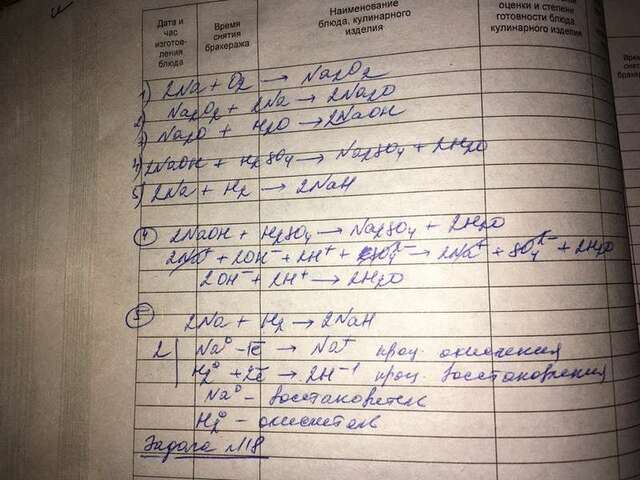 Дата и час изготовления блюда
Время снятия бракеража
Наименование блюда, кулинарного изделия
оценки и степени готовности блюда кулинарного изделия
1) 2Na + O₂ → Na₂O₂
2) Na₂O₂ + 2Na → 2Na₂O
3) Na₂O + H₂O → 2NaOH
4) 2NaOH + H₂SO₄ → Na₂SO₄ + 2H₂O
5) 2Na + H₂ → 2NaH
4 2NaOH + H₂SO₄ → Na₂SO₄ + 2H₂O
2Na⁺ + 2OH⁻ + 2H⁺ + SO₄²⁻ → 2Na⁺ + SO₄²⁻ + 2H₂O
2OH⁻ + 2H⁺ → 2H₂O
5 2Na + H₂ → 2NaH
2 | Na⁰ – 1e̅ → Na⁺ проц. окисления
H₂⁰ + 2e̅ → 2H⁻¹ проц. восстановления
Na⁰ – восстановитель
H₂⁰ – окислитель
Задача №18